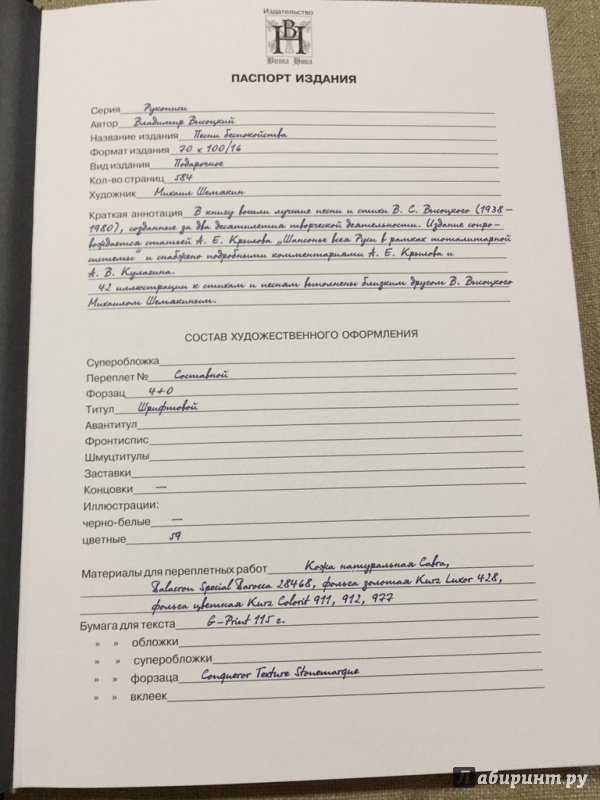 Издательство
ВН
Вита Нова
ПАСПОРТ ИЗДАНИЯ
Серия Рукописи
Автор Владимир Высоцкий
Название издания Песни беспокойства
Формат издания 70 х 100/16
Вид издания Подарочное
Кол-во страниц 584
Художник Михаил Шемякин
Краткая аннотация В книгу вошли лучшие песни и стихи В. С. Высоцкого (1938–
1980), созданные за два десятилетия творческой деятельности. Издание сопро-
вождается статьей А. Е. Крылова „Шансонье всея Руси в рамках тоталитарной
системы" и снабжено подробными комментариями А. Е. Крылова и
А. В. Кулагина.
42 иллюстрации к стихам и песням выполнены близким другом В. Высоцкого
Михаилом Шемякиным.
СОСТАВ ХУДОЖЕСТВЕННОГО ОФОРМЛЕНИЯ
Суперобложка
Переплет № Составной
Форзац 4+0
Титул Шрифтовой
Авантитул
Фронтиспис
Шмуцтитулы
Заставки
Концовки —
Иллюстрации:
черно-белые —
цветные 59
Материалы для переплетных работ Кожа натуральная Cabra,
Balacron Special Barocca 28468, фольга золотая Kurz Luxor 428,
фольга цветная Kurz Colorit 911, 912, 977
Бумага для текста G-Print 115 г.
» » обложки
» » суперобложки
» » форзаца Conqueror Texture Stonemarque
» » вклеек
Лабиринт.ру